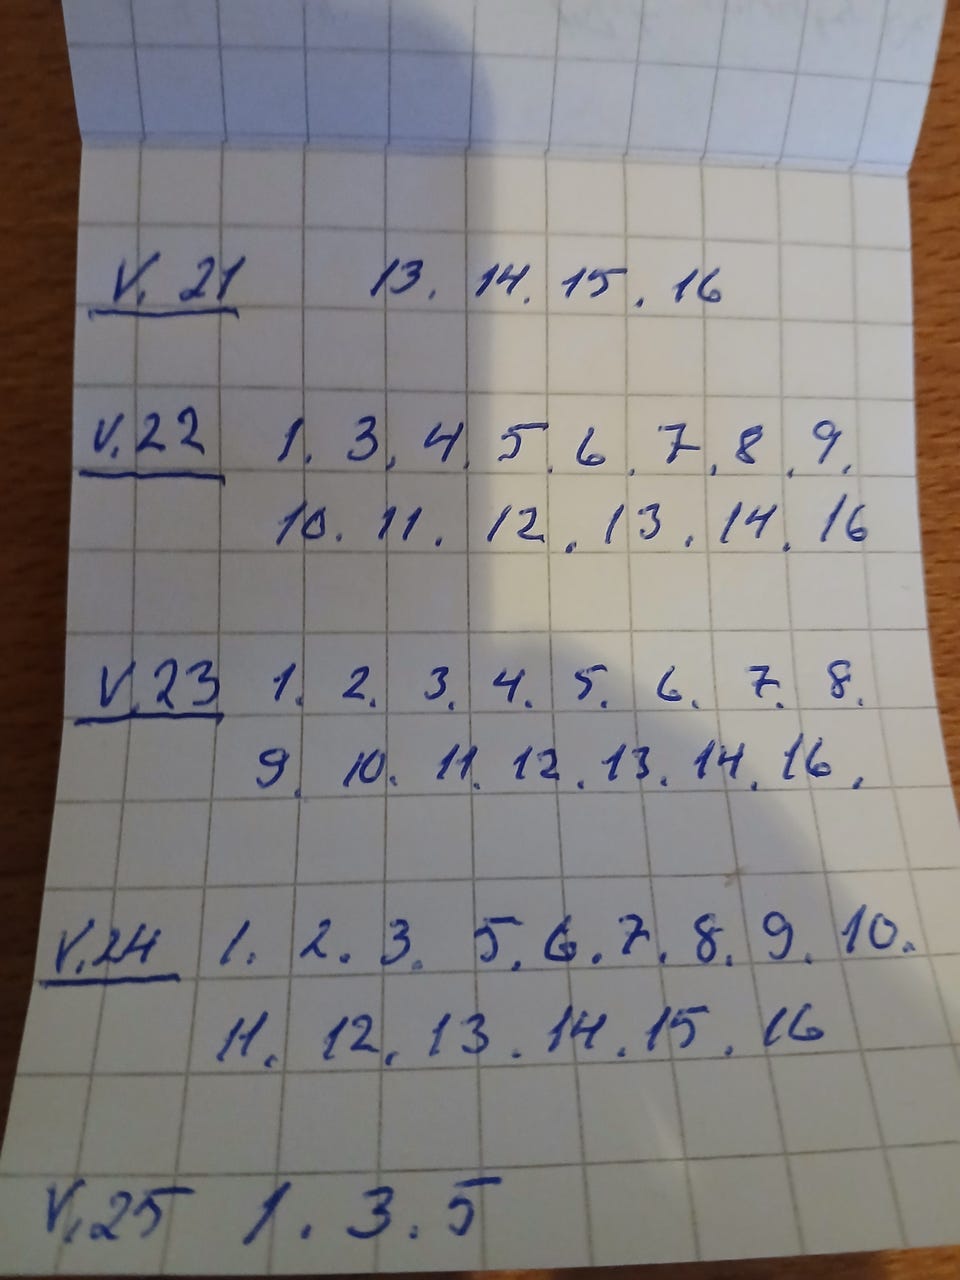 V. 21 13. 14. 15. 16
V. 22 1. 3. 4. 5. 6. 7. 8. 9.
10. 11. 12. 13. 14. 16
V. 23 1. 2. 3. 4. 5. 6. 7. 8.
9. 10. 11. 12. 13. 14. 16.
V. 24 1. 2. 3. 5. 6. 7. 8. 9. 10.
11. 12. 13. 14. 15. 16
V. 25 1. 3. 5